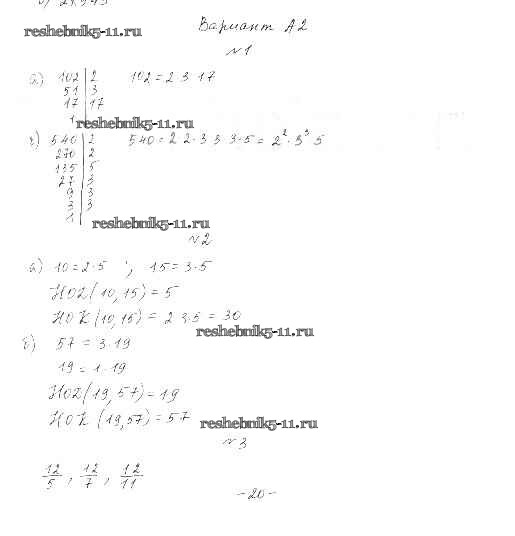 reshebnik5-11.ru
Вариант А2
№1
а) 102 | 2    102 = 2 3 17
51 | 3
17 | 17
1
reshebnik5-11.ru
б) 540 | 2    540 = 2 2·3 3 3·5 = 2²·3³ 5
270 | 2
135 | 5
27 | 3
9 | 3
3 | 3
1
reshebnik5-11.ru
№2
а) 10 = 2·5 ; 15 = 3·5
НОД(10,15) = 5
НОК(10,15) = 2 3·5 = 30
reshebnik5-11.ru
б) 57 = 3·19
19 = 1·19
НОД(19,57) = 19
НОК (19,57) = 57
reshebnik5-11.ru
№3
12/5 , 12/7 , 12/11
-20-